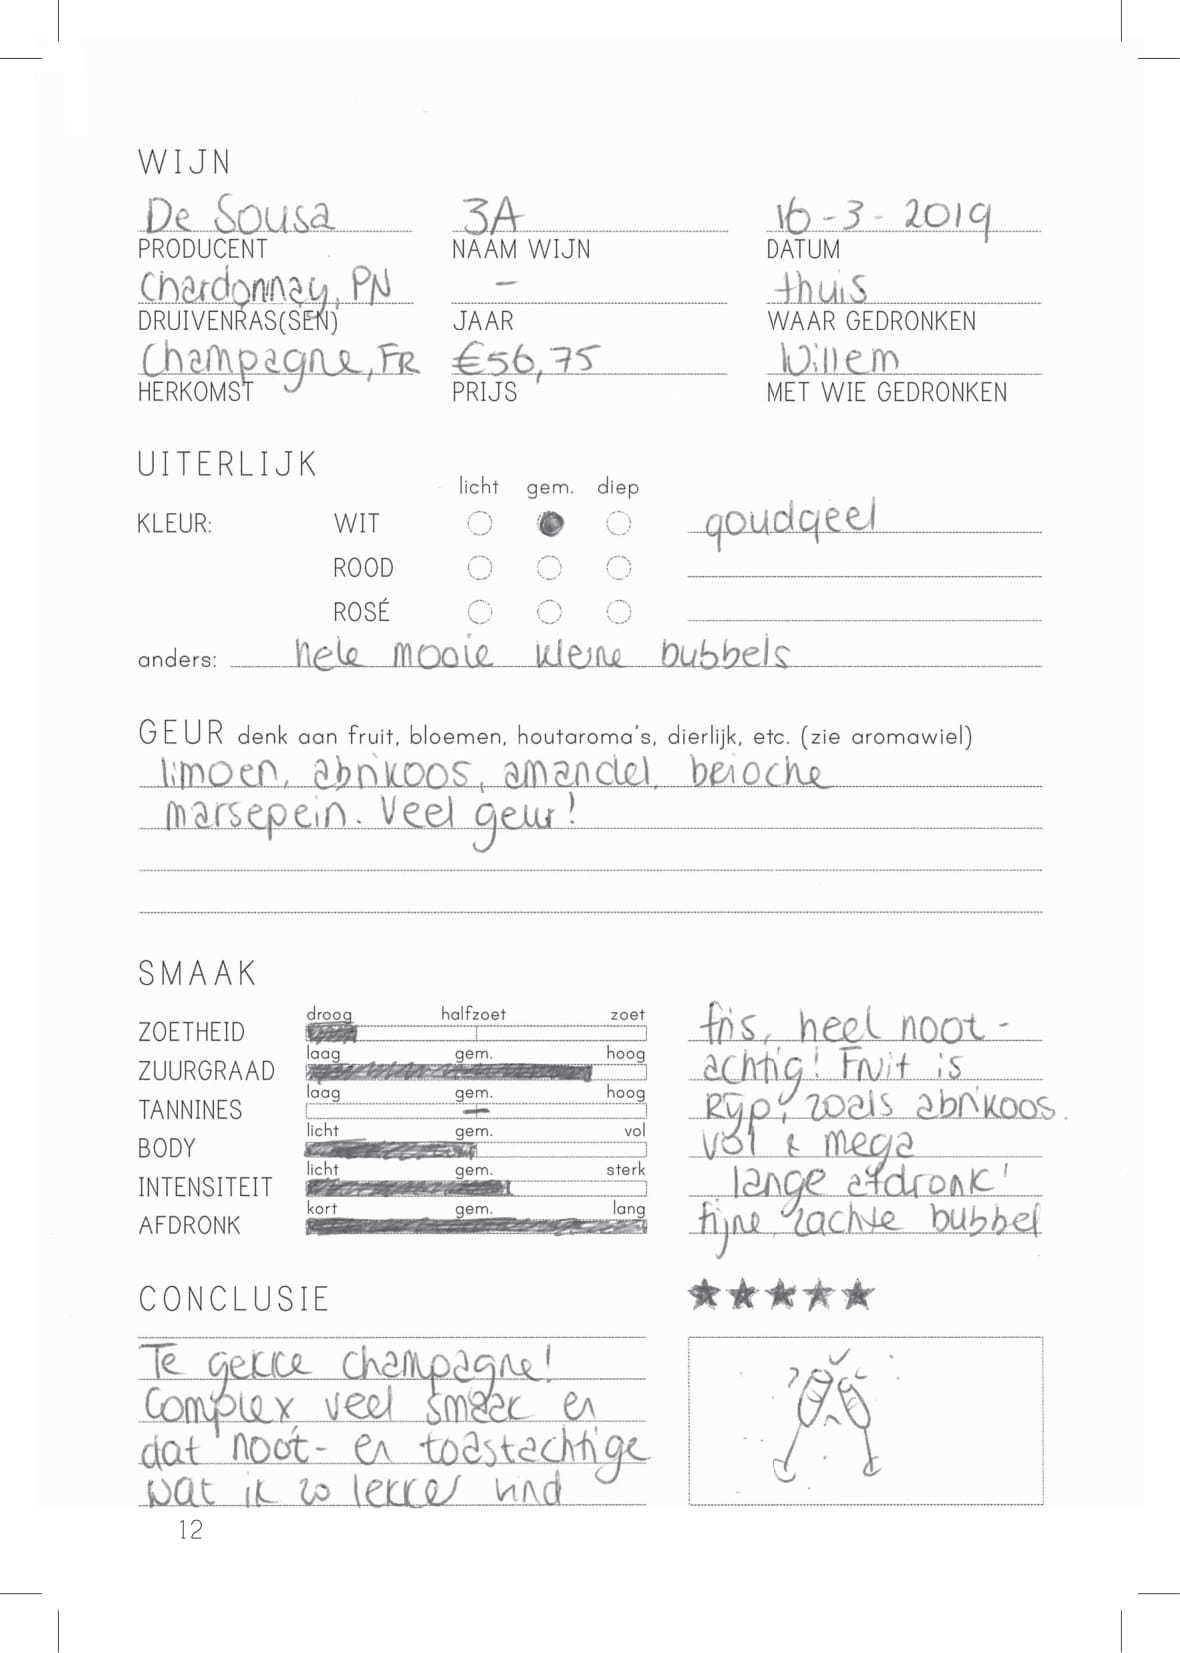 WIJN
De Sousa 3A 16-3-2019
PRODUCENT NAAM WIJN DATUM
Chardonnay, PN - thuis
DRUIVENRAS(SEN) JAAR WAAR GEDRONKEN
Champagne, FR €56,75 Willem
HERKOMST PRIJS MET WIE GEDRONKEN
UITERLIJK
licht gem. diep
KLEUR: WIT goudgeel
ROOD
ROSÉ
anders: hele mooie kleine bubbels
GEUR denk aan fruit, bloemen, houtaroma's, dierlijk, etc. (zie aromawiel)
limoen, abrikoos, amandel, brioche
marsepein. Veel geur!
SMAAK
droog halfzoet zoet
ZOETHEID fris, heel noot-
laag gem. hoog
ZUURGRAAD achtig! Fruit is
laag gem. hoog
TANNINES Rijp, zoals abrikoos.
licht gem. vol
BODY vol & mega
licht gem. sterk
INTENSITEIT lange afdronk!
kort gem. lang
AFDRONK fijne, zachte bubbel
CONCLUSIE
Te gekke champagne!
Complex, veel smaak en
dat noot- en toastachtige
wat ik zo lekker vind
12